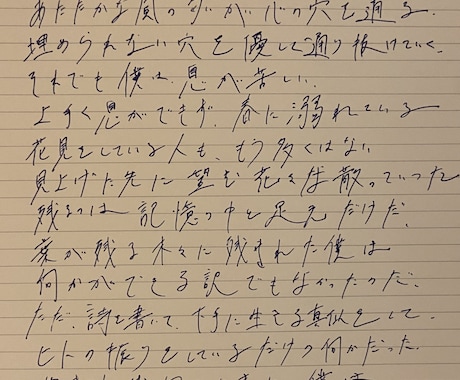 あたたかな風のせいか心の穴を通る。
埋められない穴を優しく通り抜けていく。
それでも僕は、息が苦しい。
上手く息ができず、春に溺れている
花見をしている人も、もう多くはない
見上げた先に望む花々は散っていった
残るのは記憶の中と足元だけだ。
葉が残る木々に残された僕は
何かができる訳でもなかったのだ。
ただ、詩を書いて、下手に生きる真似をして、
ヒトの振りをしているだけの何かだった。